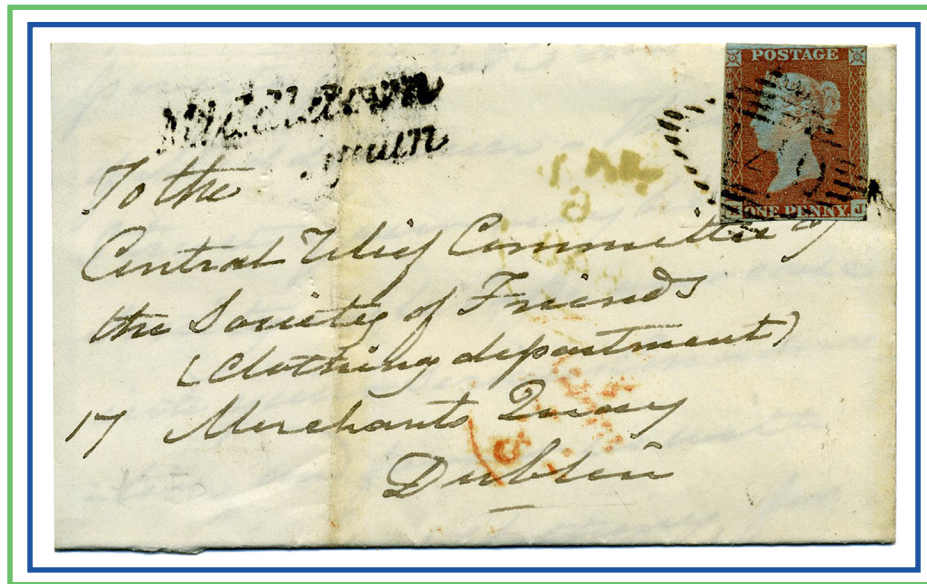 Middletown
POSTAGE
ONE PENNY J
To the
Central Relief Committee of
the Society of Friends
(Clothing department)
17 Merchants Quay
Dublin